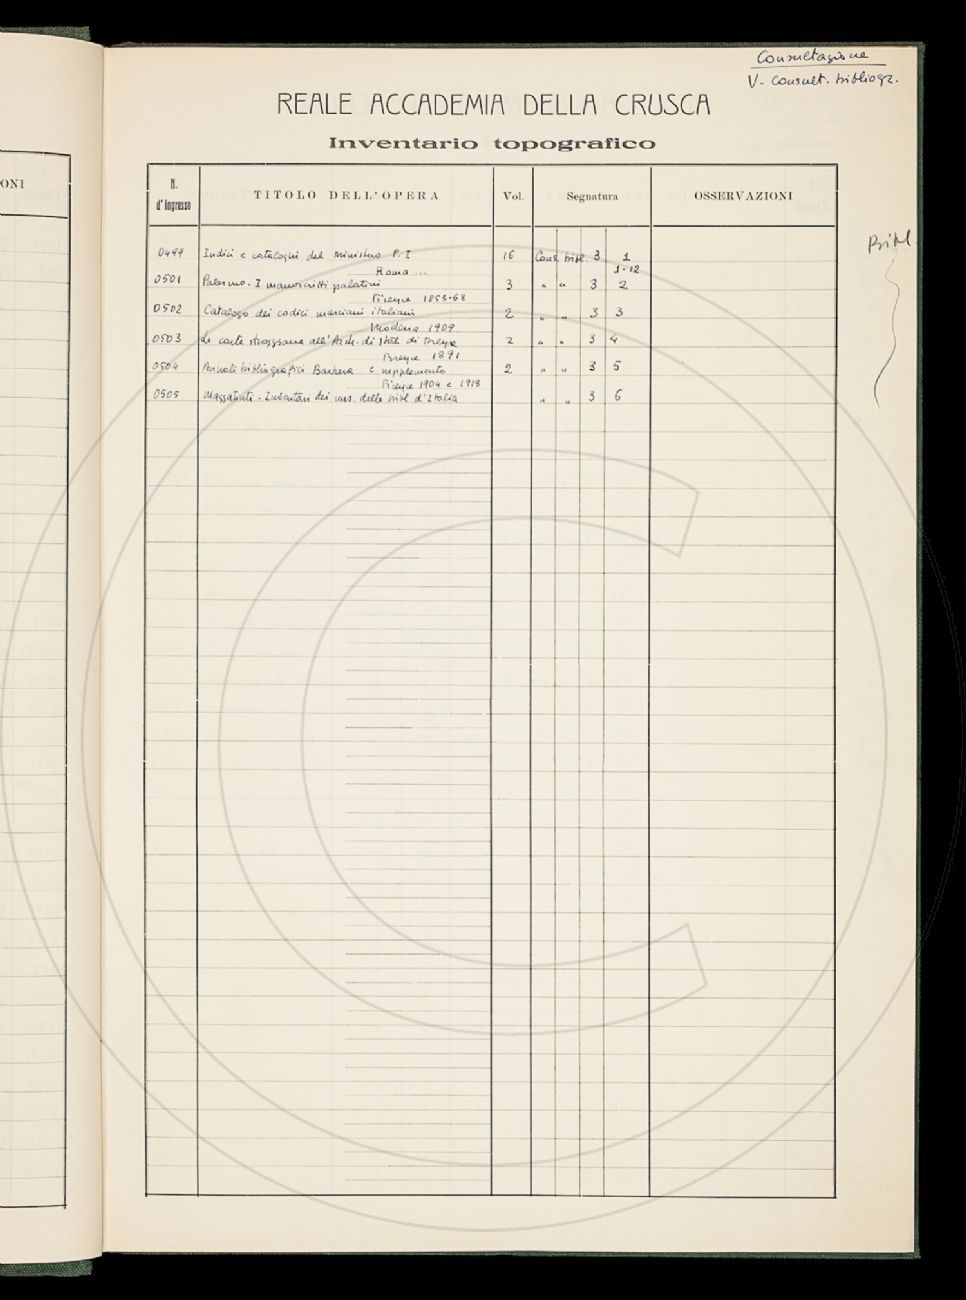 Consultazione
V - Consult. bibliogr.
REALE ACCADEMIA DELLA CRUSCA
Inventario topografico
ONI
N. d'ingresso TITOLO DELL'OPERA Vol. Segnatura OSSERVAZIONI
Bibl
0499 Indici e cataloghi del Ministero P. I 16 Cons. bibl. 3 1
Roma ... 1-12
0501 Palermo - I manoscritti palatini 3 " " 3 2
Firenze 1853-68
0502 Catalogo dei codici marciani italiani 2 " " 3 3
Modena 1909
0503 Le carte strozziane all'Arch. di Stat. di Firenze 2 " " 3 4
Firenze 1891
0504 Annali bibliografici Barbera e supplemento 2 " " 3 5
Firenze 1904 e 1918
0505 Mazzatinti - Inventari dei mss. delle bibl. d'Italia " " 3 6